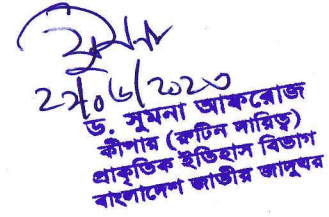 ২২/০৬/২০২৩
ড. সুমনা আফরোজ
কীপার (রুটিন দায়িত্ব)
প্রাকৃতিক ইতিহাস বিভাগ
বাংলাদেশ জাতীয় জাদুঘর